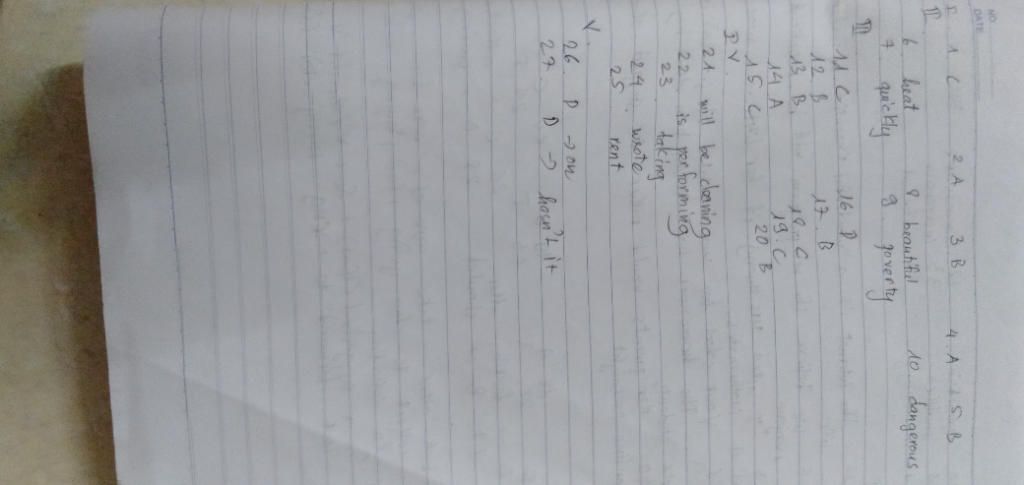 NO.
DATE
I 1 C 2 A 3 B 4. A 5. B
II
6 heat 8 beautiful 10 dangerous
7 quickly 9 poverty
III
11 C 16. D
12 B 17. B
13 B. 18. C
14 A 19. C
15. C 20 B
IV.
21. will be cleaning
22 is performing
23. taking
24. wrote
25 rent
V.
26. D → on
27. D → hasn't it